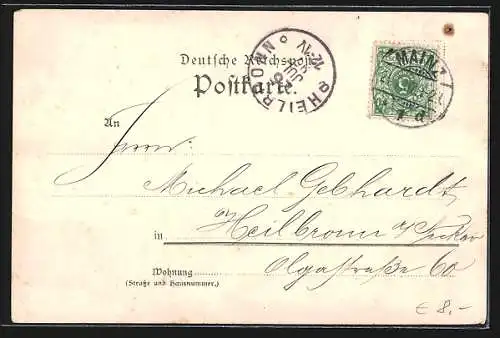 Deutsche Reichspost
Postkarte.
HEILBRONN
MAINZ
5
An
Herrn
Michael Gebhardt,
Heilbronn a/Neckar
in
Olgastraße 60
Wohnung
(Straße und Hausnummer.)
€ 8,-